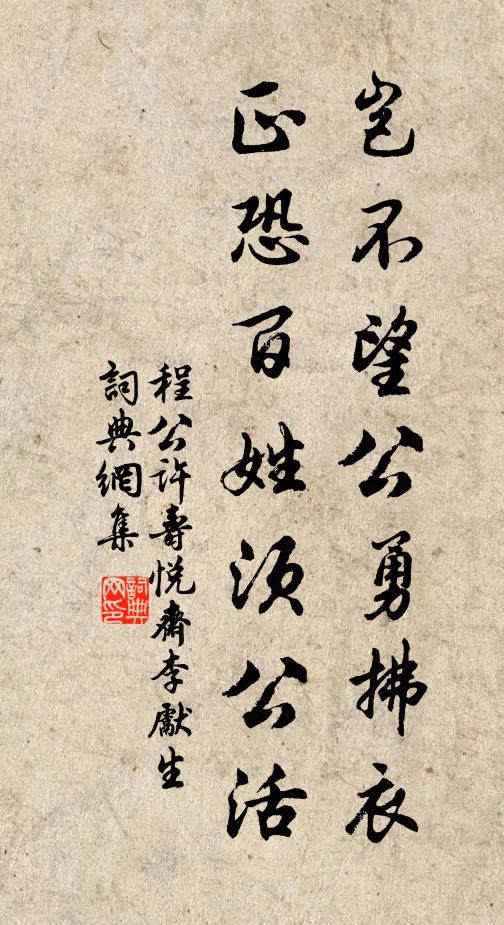 豈不望公勇拂衣
正恐百姓須公活
程公許壽悅齋李獻生
詞典網集
詞典網印